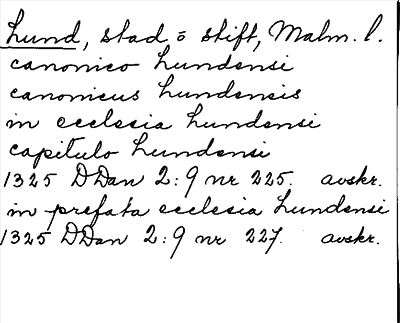 Lund, stad o stift, Malm. l.
canonico Lundensi
canonicus Lundensis
in ecclesia Lundensi
capitulo Lundensi
1325 DDan 2:9 nr 225. avskr.
in prefata ecclesia Lundensi
1325 DDan 2:9 nr 227. avskr.